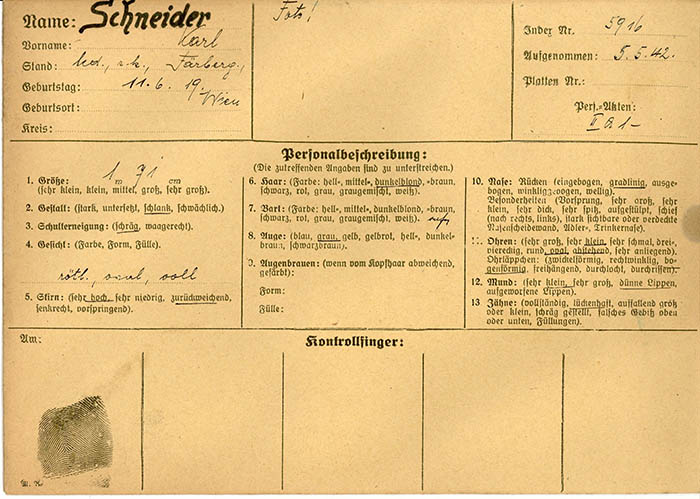 Name: Schneider
Vorname: Karl
Stand: led., r.k., Färberg.,
Geburtstag: 11. 6. 19.
Geburtsort: Wien
Kreis:
Foto!
Index Nr. 5916
Aufgenommen: 5.5.42.
Platten Nr.:
Pers.-Akten:
Personalbeschreibung:
(Die zutreffenden Angaben sind zu unterstreichen.)
1. Größe: 1 m 71 cm
(sehr klein, klein, mittel, groß, sehr groß).
2. Gestalt: (stark, untersetzt, schlank, schwächlich.)
3. Schulterneigung: (schräg, waagerecht.)
4. Gesicht: (Farbe, Form, Fülle).
rötl., oval, voll
5. Stirn: (sehr hoch, sehr niedrig, zurückweichend,
senkrecht, vorspringend).
6. Haar: (Farbe: hell-, mittel-, dunkelblond, -braun,
schwarz, rot, grau, graugemischt, weiß).
7. Bart: (Farbe: hell-, mittel-, dunkelblond, -braun,
schwarz, rot, grau, graugemischt, weiß).
8. Auge: (blau, grau, gelb, gelbrot, hell-, dunkel-
braun, schwarzbraun).
9. Augenbrauen: (wenn vom Kopfhaar abweichend,
gefärbt):
Form:
Fülle:
10. Nase: Rücken (eingebogen, gradlinig, ausge-
bogen, winklig-gebogen, wellig).
Besonderheiten (Vorsprung, sehr groß, sehr
klein, sehr dick, sehr spitz, aufgestülpt, schief
(nach rechts, links), stark sichtbare oder verdeckte
Nasenscheidewand, Adler-, Trinkernase).
11. Ohren: (sehr groß, sehr klein, sehr schmal, drei-,
viereckig, rund, oval, abstehend, sehr anliegend).
Ohrläppchen: (zwickelförmig, rechtwinklig, bo-
genförmig, freihängend, durchlocht, durchrissen).
12. Mund: (sehr klein, sehr groß, dünne Lippen,
aufgeworfene Lippen).
13 Zähne: (vollständig, lückenhaft, auffallend groß
oder klein, schräg gestellt, falsches Gebiß oben
oder unten, Füllungen).
Am:
Kontrollfinger: